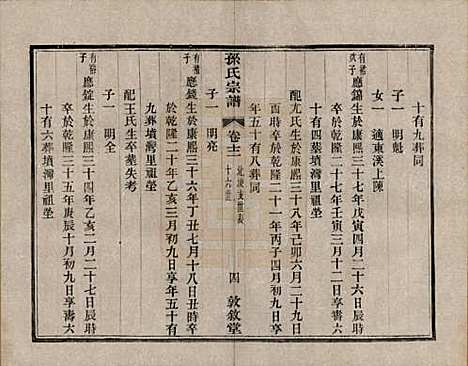 十有九葬同
子一　明魁
女一　適東溪上陳
有裕次子　應錦生於康熙三十七年戊寅四月二十六日辰時
卒於乾隆二十七年壬寅三月十一日享壽六
十有四葬墳灣里祖塋
配尤氏生於康熙三十八年己卯六月二十九日
酉時卒於乾隆二十一年丙子四月初九日享
年五十有八葬同
子一　明亮
孫氏宗譜　卷十二　十六世　四　敦敘堂
有裕子　應錢生於康熙三十六年丁丑七月十八日丑時卒
於乾隆二十年乙亥三月初九日享年五十有
九葬墳灣里祖塋
配王氏生卒葬失考
子一　明全
有裕子　應錠生於康熙三十四年乙亥二月二十七日辰時
卒於乾隆三十五年庚辰十月初九日享壽六
十有六葬墳灣里祖塋